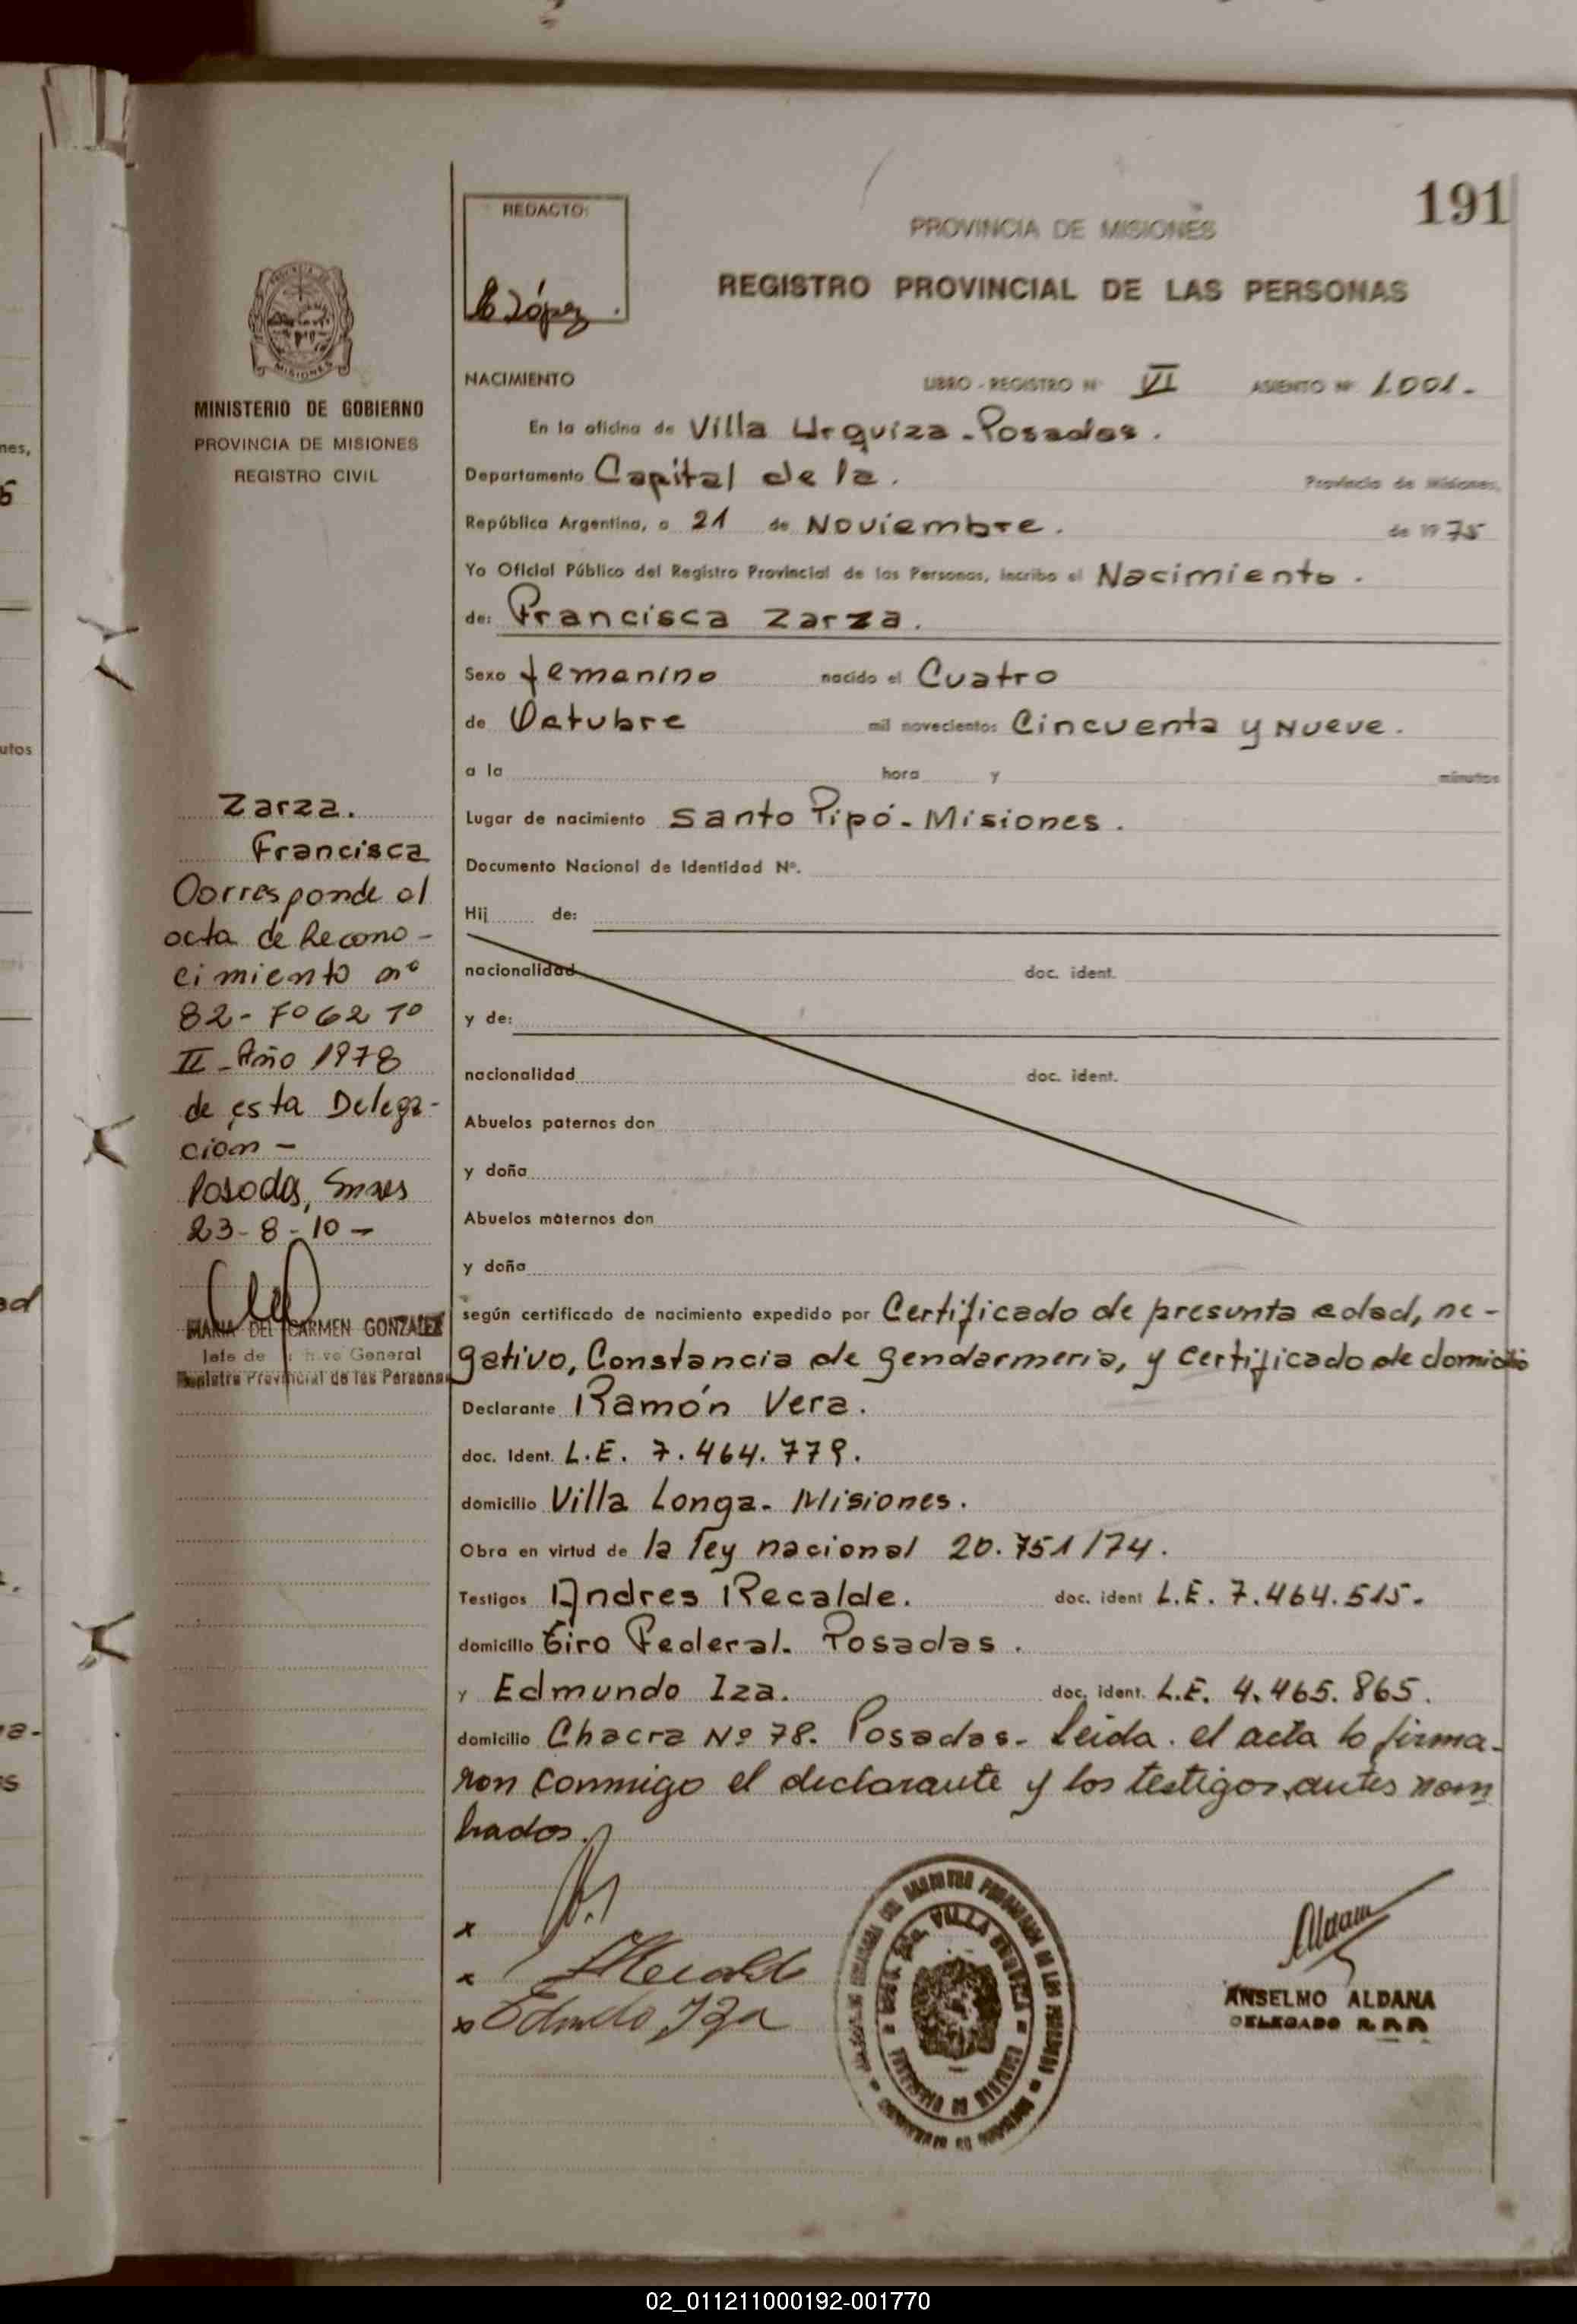 191
REDACTO:
López
PROVINCIA DE MISIONES
REGISTRO PROVINCIAL DE LAS PERSONAS
MISIONES
MINISTERIO DE GOBIERNO
PROVINCIA DE MISIONES
REGISTRO CIVIL
NACIMIENTO LIBRO - REGISTRO Nº VI ASIENTO Nº 1.001.-
En la oficina de Villa Urquiza - Posadas.
Departamento Capital de la. Provincia de Misiones,
República Argentina, a 21 de Noviembre. de 1975
Yo Oficial Público del Registro Provincial de las Personas, incribo el Nacimiento.
de: Francisca Zarza.
Sexo femenino nacido el Cuatro
de Octubre mil novecientos Cincuenta y Nueve.
a la hora y minutos
Lugar de nacimiento Santo Pipó - Misiones.
Documento Nacional de Identidad Nº.
Hij de:
nacionalidad doc. ident.
y de:
nacionalidad doc. ident.
Abuelos paternos don
y doña
Abuelos maternos don
y doña
según certificado de nacimiento expedido por Certificado de presunta edad, ne-
gativo, Constancia de gendarmeria, y certificado de domicilio
Declarante Ramón Vera.
doc. Ident. L.E. 7.464.779.
domicilio Villa Longa - Misiones.
Obra en virtud de la ley nacional 20.751/74.
Testigos Andres Recalde. doc. ident L.E. 7.464.515.-
domicilio Tiro Federal. Posadas.
y Edmundo Iza. doc. ident. L.E. 4.465.865.
domicilio Chacra Nº 78. Posadas - Leida el acta lo firma-
ron conmigo el declarante y los testigos antes nom
brados.
Zarza.
Francisca
Corresponde al
acta de Recono-
cimiento nº
82 - Fº 62 Tº
II - Año 1978
de esta Delega-
ción -
Posadas, Snes
23-8-10 -
MARIA DEL CARMEN GONZALEZ
Jefe de General
Registro Provincial de las Personas
x
x Recalde
x Edmundo Iza
VILLA URQUIZA
PROVINCIA DE MISIONES
Aldana
ANSELMO ALDANA
DELEGADO R.P.P.
02_011211000192-001770